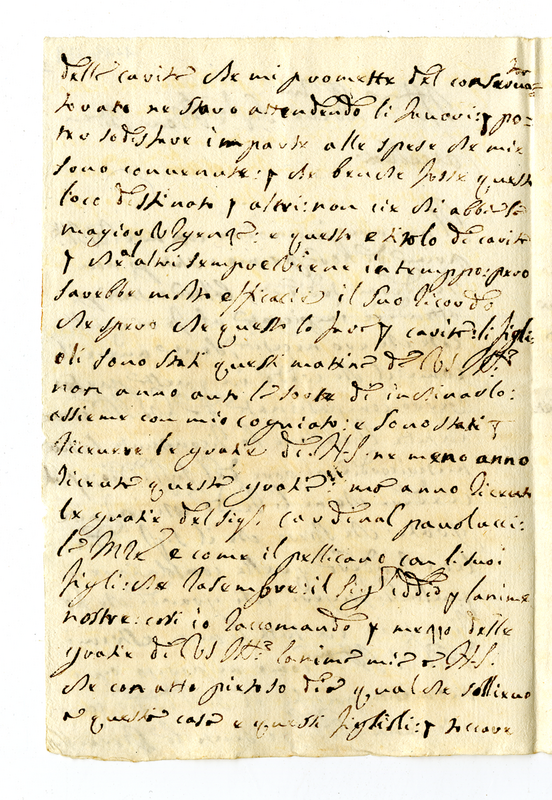 delle carite che mi promette del conserva=
torato ne stavo attendendo li favori: e po=
tro sodisfare in parte alle spese che mi
sono convenute: che
loco destinato p altri: non cie chi abbi la
magior e questo e titolo di carita
p che al altri sempre viene in temppo: pero
sarebbe molto efficacie il suo ricordo
che spero che questo lo fara p carita: li figli=
oli sono stati questi matina da VS Ill.ma
non anno auto la sorte di inchinarlo:
assieme con mio cogniato: e sono stati p
ricevere le gratie di N.S. ne meno anno
ricevuto queste gratie: mo anno ricevuto
le gratie del sig.r cardinal paulucci:
la Mre e come il pellicano con li suoi
figli: che fa sempre: il sig.r iddio p lanime
nostre: cosi io racomando p mezzo delle
gratie di VS Ill.ma lanima mia a N.S.
che con atto pietoso dia qualche sollievo
a questa casa e questi figlioli: p